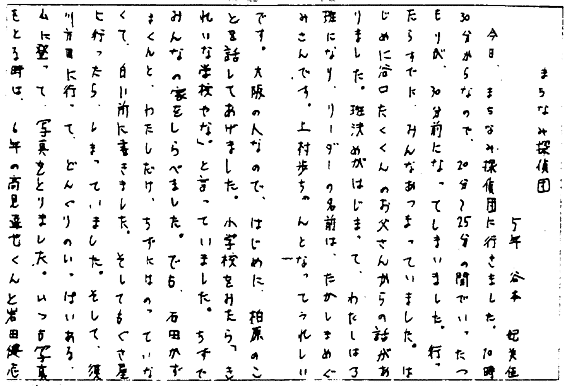 まちなみ探偵団
5年 谷本
今日、まちなみ探偵団に行きました。10時
30分からなので、20分~25分の間でいったつ
もりが、30分前になってしまいました。行っ
たらすでに、みんなあつまっていました。は
じめに谷口たくくんのお父さんからの話があ
りました。班決めがはじまって、わたしは3
班になり、リーダーの名前は、たかしまめぐ
みさんです。上村歩ちゃんとなってうれしい
です。大阪の人なので、はじめに、柏原のこ
とを話してあげました。小学校をみたら「き
れいな学校やな」と言っていました。ちずで
みんなの家をしらべました。でも、石田かず
まくんと、わたしだけ、ちずにはのっていな
くて、白い所に書きました。そしてもぐさ屋
に行ったら、しまっていました。そして、須
川方田に行って、どんぐりのいっぱいある、
山に登って、写真をとりました。いつも写真
をとる時は、6年の高見達也くんと岩田健志